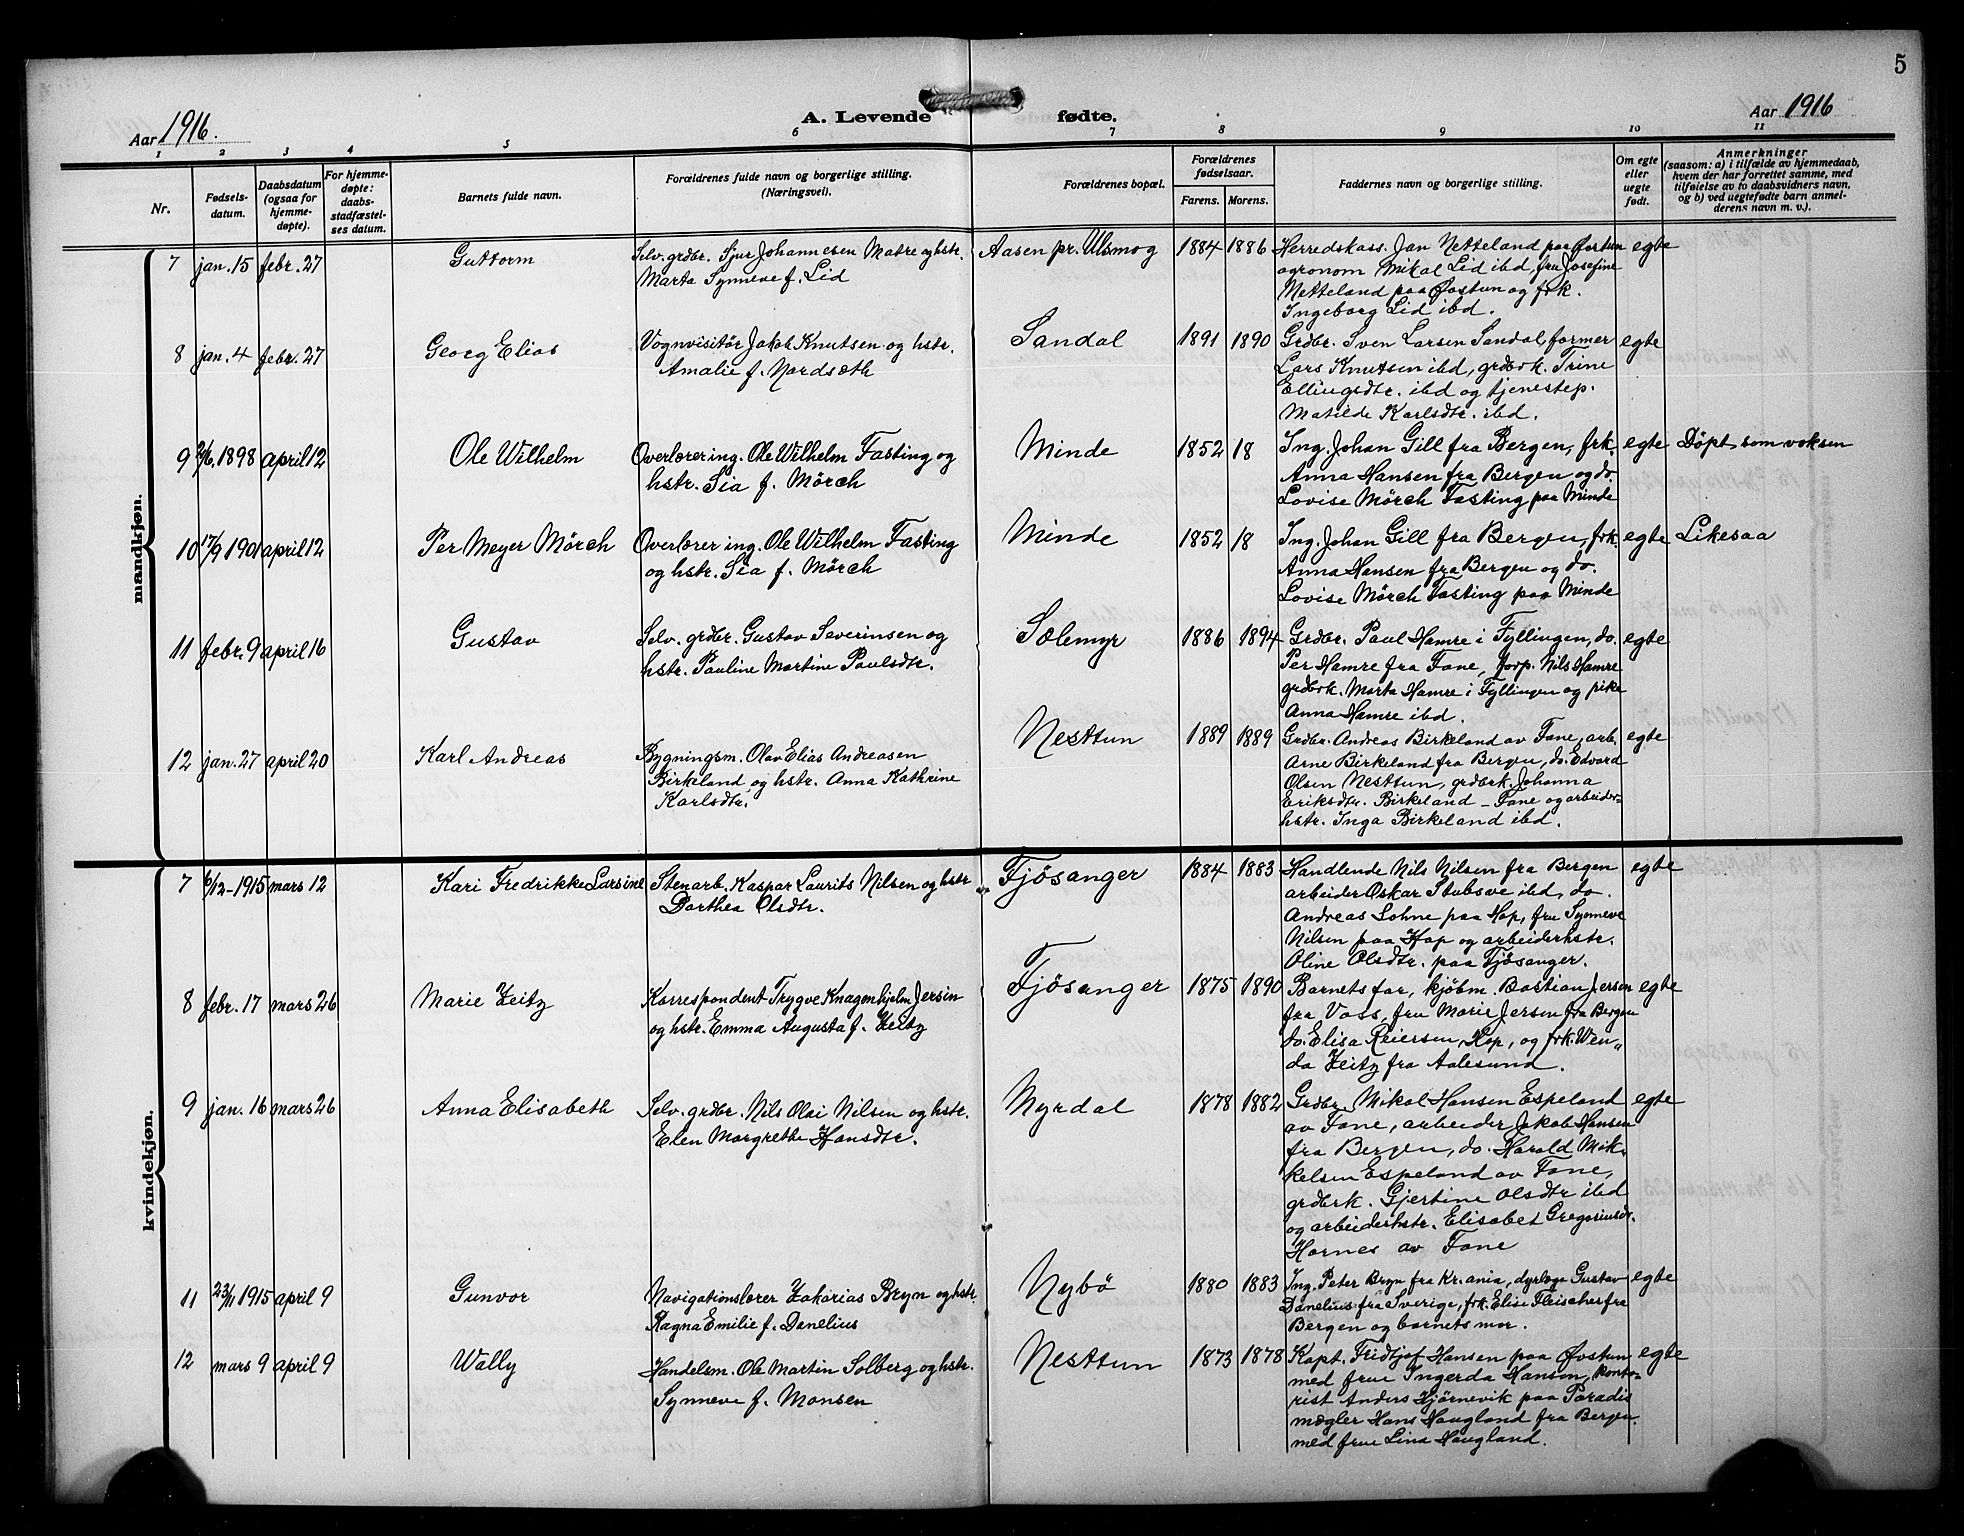 5
Aar 1916.
A. Levende fødte.
Aar 1916
1 2 3 4 5 6 7 8 9 10 11
Nr.
Fødsels-
datum.
Daabsdatum
(ogsaa for
hjemme-
døpte).
For hjemme-
døpte:
daabs-
stadfæstel-
ses datum.
Barnets fulde navn.
Forældrenes fulde navn og borgerlige stilling.
(Næringsvei).
Forældrenes bopæl.
Forældrenes
fødselsaar.
Farens. Morens.
Faddernes navn og borgerlige stilling.
Om egte
eller
uegte
født.
Anmerkninger
(saasom: a) i tilfælde av hjemmedaab,
hvem der har forrettet samme, med
tilføielse av to daabsvidners navn,
og b) ved uegtefødte barn anmel-
derens navn m. v.).
mandkjøn.
7 jan. 15 febr. 27 Guttorm
Selv. grdbr. Sjur Johannesen Matre og hstr.
Marta Synneve f. Lid
Aasen pr. Ulsmog 1884 1886
Herredskass. Jan Netteland paa Øvstun
agronom Mikal Lid ibd, fru Josefine
Netteland paa Øvstun og frk.
Ingeborg Lid ibd.
egte
8 jan. 4 febr. 27 Georg Elias
Vognvisitör Jakob Knutsen og hstr.
Amalie f. Nordsæth
Sandal 1891 1890
Grdbr. Sven Larsen Sandal, former
Lars Knutsen ibd, grdbrk. Trine
Ellingsdtr. ibd og tjenestep.
Matilde Karlsdtr. ibd.
egte
9 /6 1898 april 12 Ole Wilhelm
Overlærer ing. Ole Wilhelm Fasting og
hstr. Sia f. Mörch
Minde 1852 18
Ing. Johan Gill fra Bergen, frk.
Anna Hansen fra Bergen og do.
Lovise Mörch Fasting paa Minde
egte Döpt som voksen
10 17/9 1901 april 12 Per Meyer Mörch
Overlærer ing. Ole Wilhelm Fasting
og hstr. Sia f. Mörch
Minde 1852 18
Ing. Johan Gill fra Bergen, frk.
Anna Hansen fra Bergen og do.
Lovise Mörch Fasting paa Minde
egte Likesaa
11 febr. 9 april 16 Gustav
Selv. grdbr. Gustav Severinsen og
hstr. Pauline Martine Paulsdtr.
Sælemyr 1886 1894
Grdbr. Paul Hamre i Fyllingen, do.
Per Hamre fra Fane, korp. Nils Hamre
grdbrk. Marta Hamre i Fyllingen og pike
Anna Hamre ibd.
egte
12 jan. 27 april 20 Karl Andreas
Bygningsm. Olav Elias Andreasen
Birkeland og hstr. Anna Kathrine
Karlsdtr.
Nesttun 1889 1889
Grdbr. Andreas Birkeland av Fane, arb.
Arne Birkeland fra Bergen, do. Edvard
Olsen Nesttun, grdbrk. Johanna
Eriksdtr. Birkeland – Fane og arbeider-
hstr. Inga Birkeland ibd.
egte
kvindekjøn.
7 6/12 - 1915 mars 12 Kari Fredrikke Larsine
Stenarb. Kaspar Laurits Nilsen og hstr
Dorthea Olsdtr.
Fjösanger 1884 1883
Handlende Nils Nilsen fra Bergen
arbeider Oskar Stubsve ibd, do.
Andreas Lohne paa Hop, fru Synneve
Nilsen paa Hop og arbeiderhstr.
Oline Olsdtr. paa Fjösanger.
egte
8 febr. 17 mars 26 Marie Zeitz
Korrespondent Trygve Knagenhjelm Jersin
og hstr. Emma Augusta f. Zeitz
Fjösanger 1875 1890
Barnets far, kjöbm. Bastian Jersen
fra Voss, fru Marie Jersen fra Bergen
do. Elisa Reiersen, Hop, og frk. Wen-
da Zeitz fra Aalesund.
egte
9 jan. 16 mars 26 Anna Elisabeth
Selv. grdbr. Nils Olai Nilsen og hstr.
Elen Margrethe Hansdtr.
Myrdal 1878 1882
Grdbr. Mikal Hansen Espeland
av Fane, arbeider Jakob Hansen
fra Bergen, do. Harald Mik-
kelsen Espeland av Fane,
grdbrk. Gjertine Olsdtr ibd
og arbeiderhstr. Elisabet Gregoriusdr.
Hornes av Fane
egte
11 23/11 1915 april 9 Gunvor
Navigationslærer Zakarias Bryn og hstr.
Ragna Emilie f. Danelius
Nybö 1880 1883
Ing. Peter Bryn fra Kr.ania, dyrlæge Gustav
Danelius fra Sverige, frk. Elise Fleischer fra
Bergen og barnets mor.
egte
12 mars 9 april 9 Wally
Handelsm. Ole Martin Solberg og hstr.
Synneve f. Monsen
Nesttun 1873 1878
Kapt. Fridtjof Hansen paa Øvstun
med frue Ingerda Hanson, konto-
rist Anders Hjørnevik paa Paradis
mægler Hans Haugland fra Bergen
med frue Lina Haugland.
egte